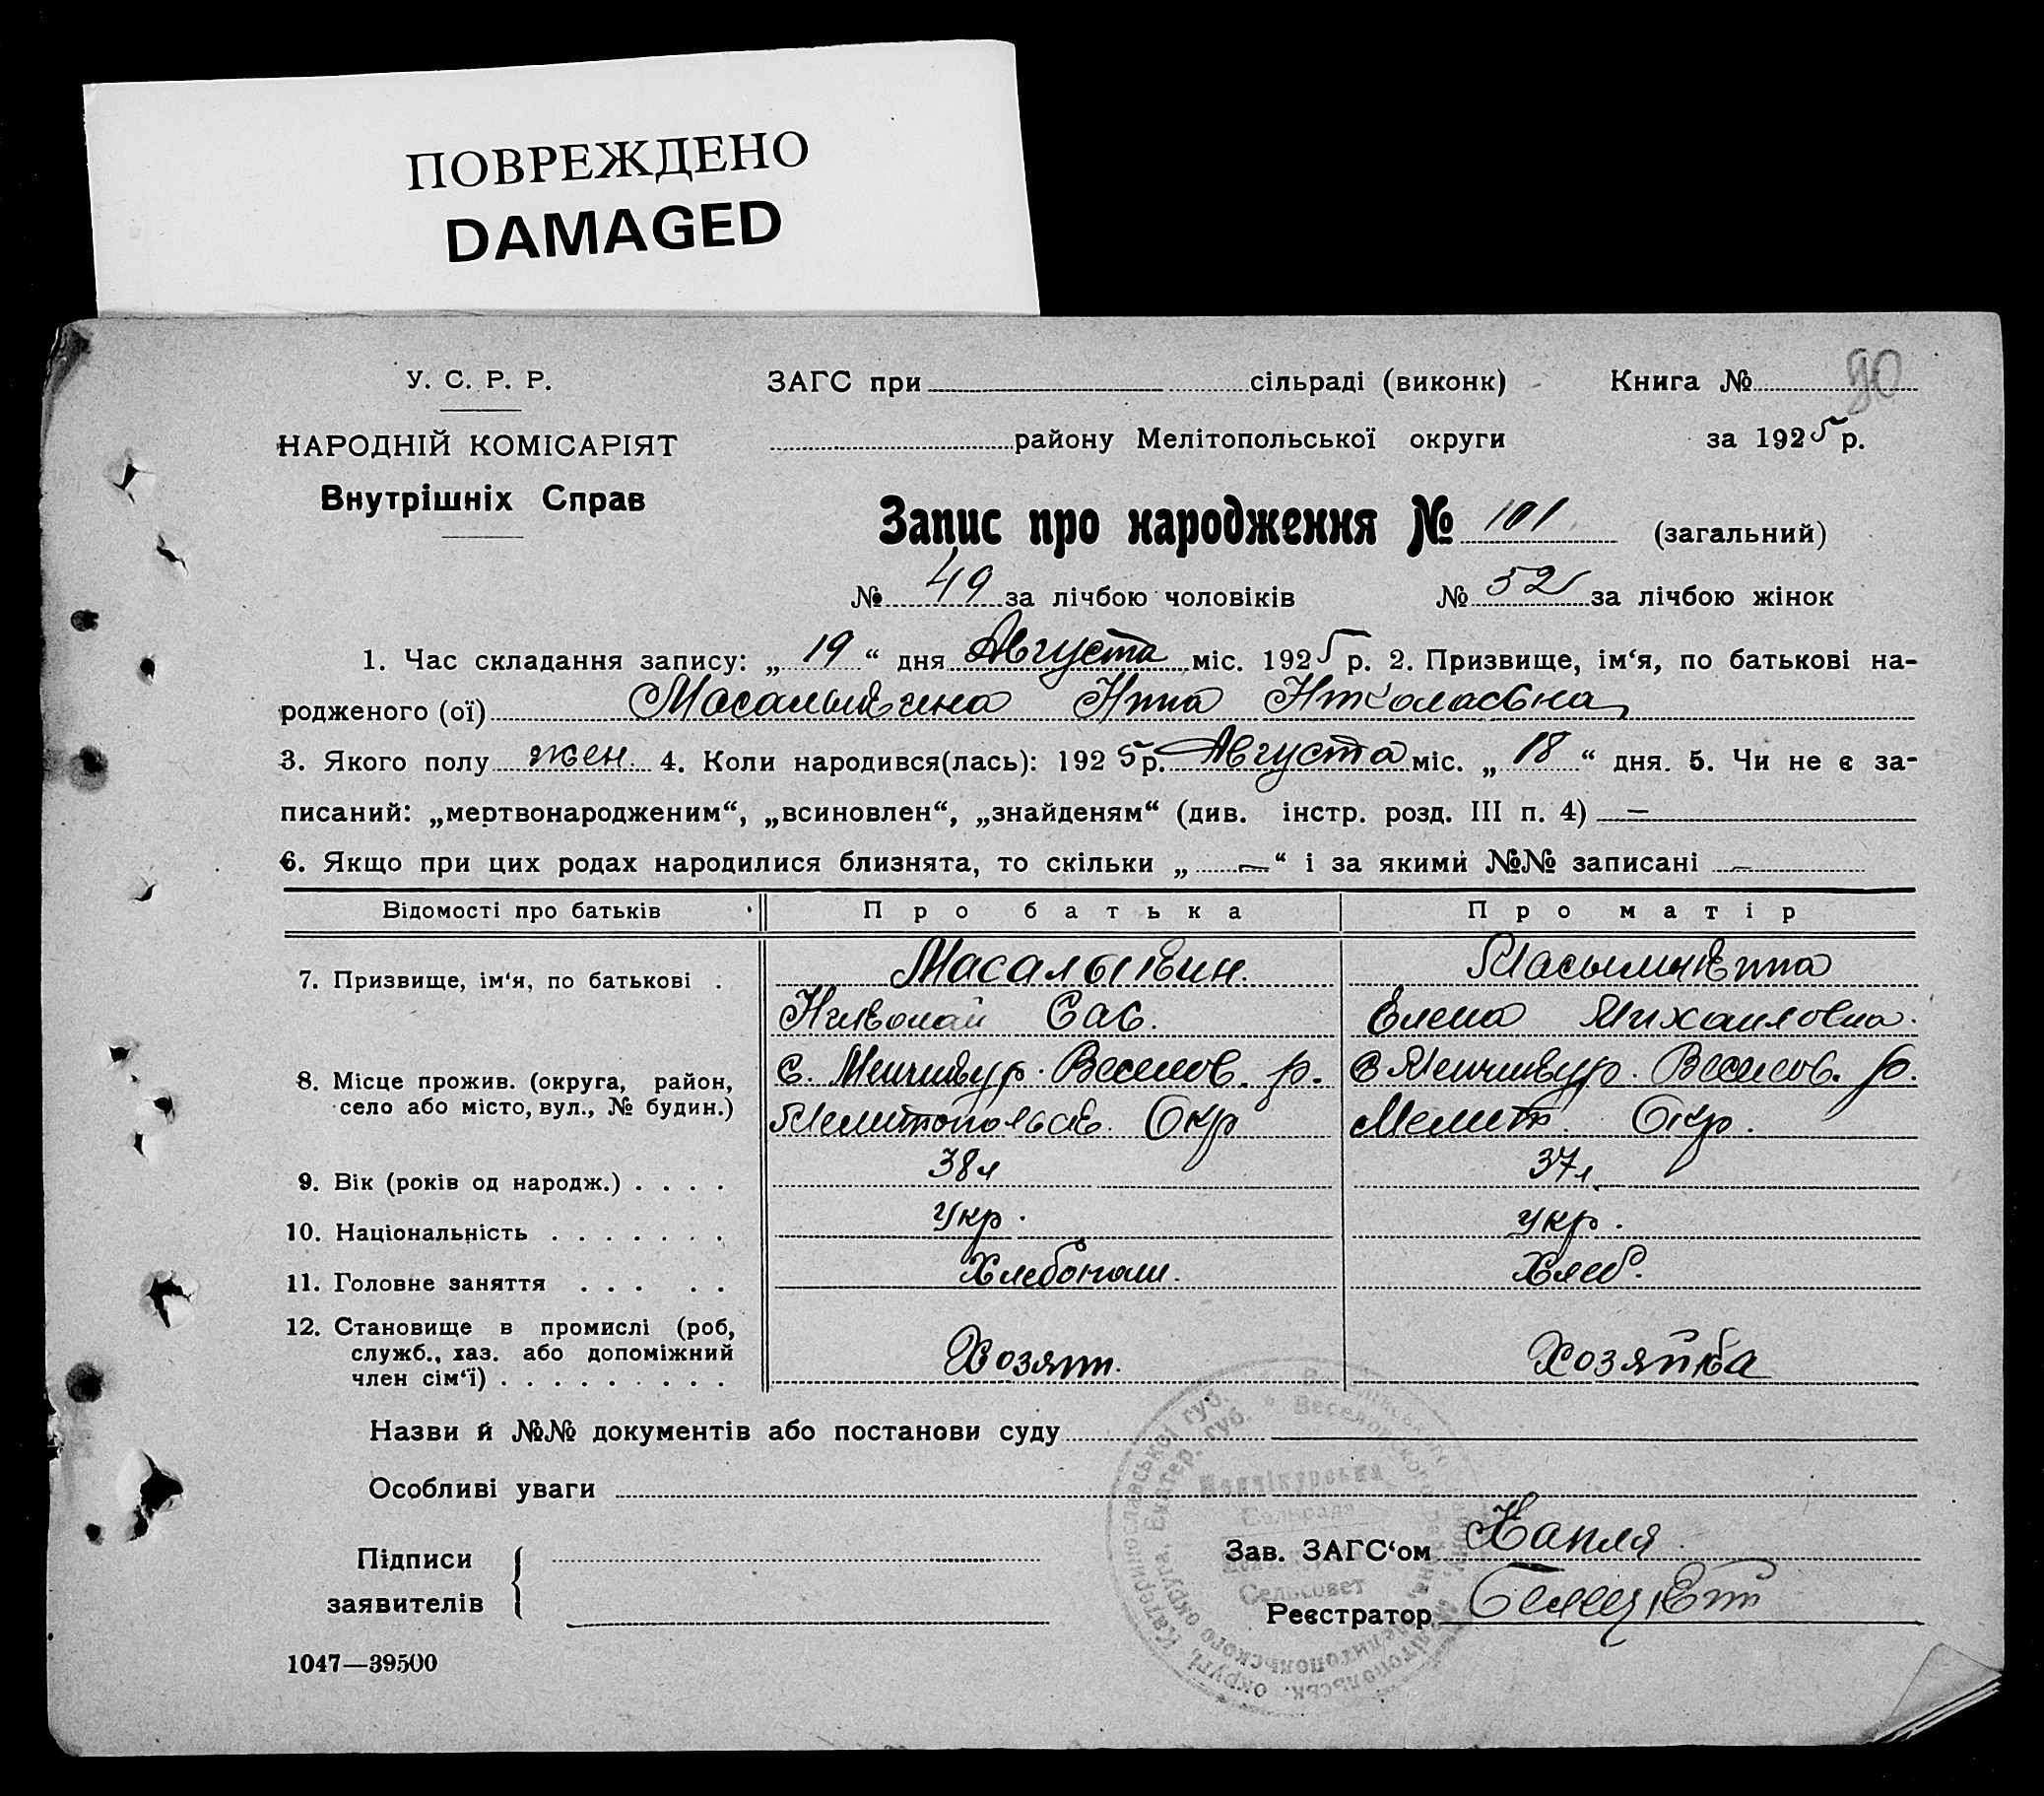 ПОВРЕЖДЕНО
DAMAGED
У. С. Р. Р.
НАРОДНІЙ КОМІСАРІЯТ
Внутрішніх Справ
ЗАГС при сільраді (виконк)
Книга №
90
району Мелітопольської округи
за 1925 р.
Запис про народження № 101 (загальний)
№ 49 за лічбою чоловіків № 52 за лічбою жінок
1. Час складання запису: „ 19 “ дня Августа міс. 1925 р. 2. Призвище, ім‘я, по батькові на-
родженого (ої) Нина Николаевна
3. Якого полу жен. 4. Коли народився(лась): 1925 р. Августа міс. „ 18 “ дня. 5. Чи не є за-
писаний: „мертвонародженим“, „всиновлен“, „знайденям“ (див. інстр. розд. III п. 4) —
6. Якщо при цих родах народилися близнята, то скільки „ — “ і за якими №№ записані —
Відомості про батьків Про батька Про матір
7. Призвище, ім‘я, по батькові . Масалыкин.
Николай Сав. Елена Михаиловна.
8. Місце прожив. (округа, район, с. Менчикур. Веселов. р. с Менчикур. Веселов. р.
село або місто, вул., № будин.) Мелитопольск. Окр Мелит. Окр.
9. Вік (років од народж.) . . . . 38л 37л
10. Національність . . . . . . . Укр. укр.
11. Головне заняття . . . . . Хлебопаш. Хлеб.
12. Становище в промислі (роб,
служб., хаз. або допоміжний Хозяин. Хозяйка
член сім‘ї) . . . . . . . . .
Назви й №№ документів або постанови суду
Особливі уваги
Підписи
заявителів
Зав. ЗАГС‘ом Капля
Реєстратор
Сельсовет
1047—39500